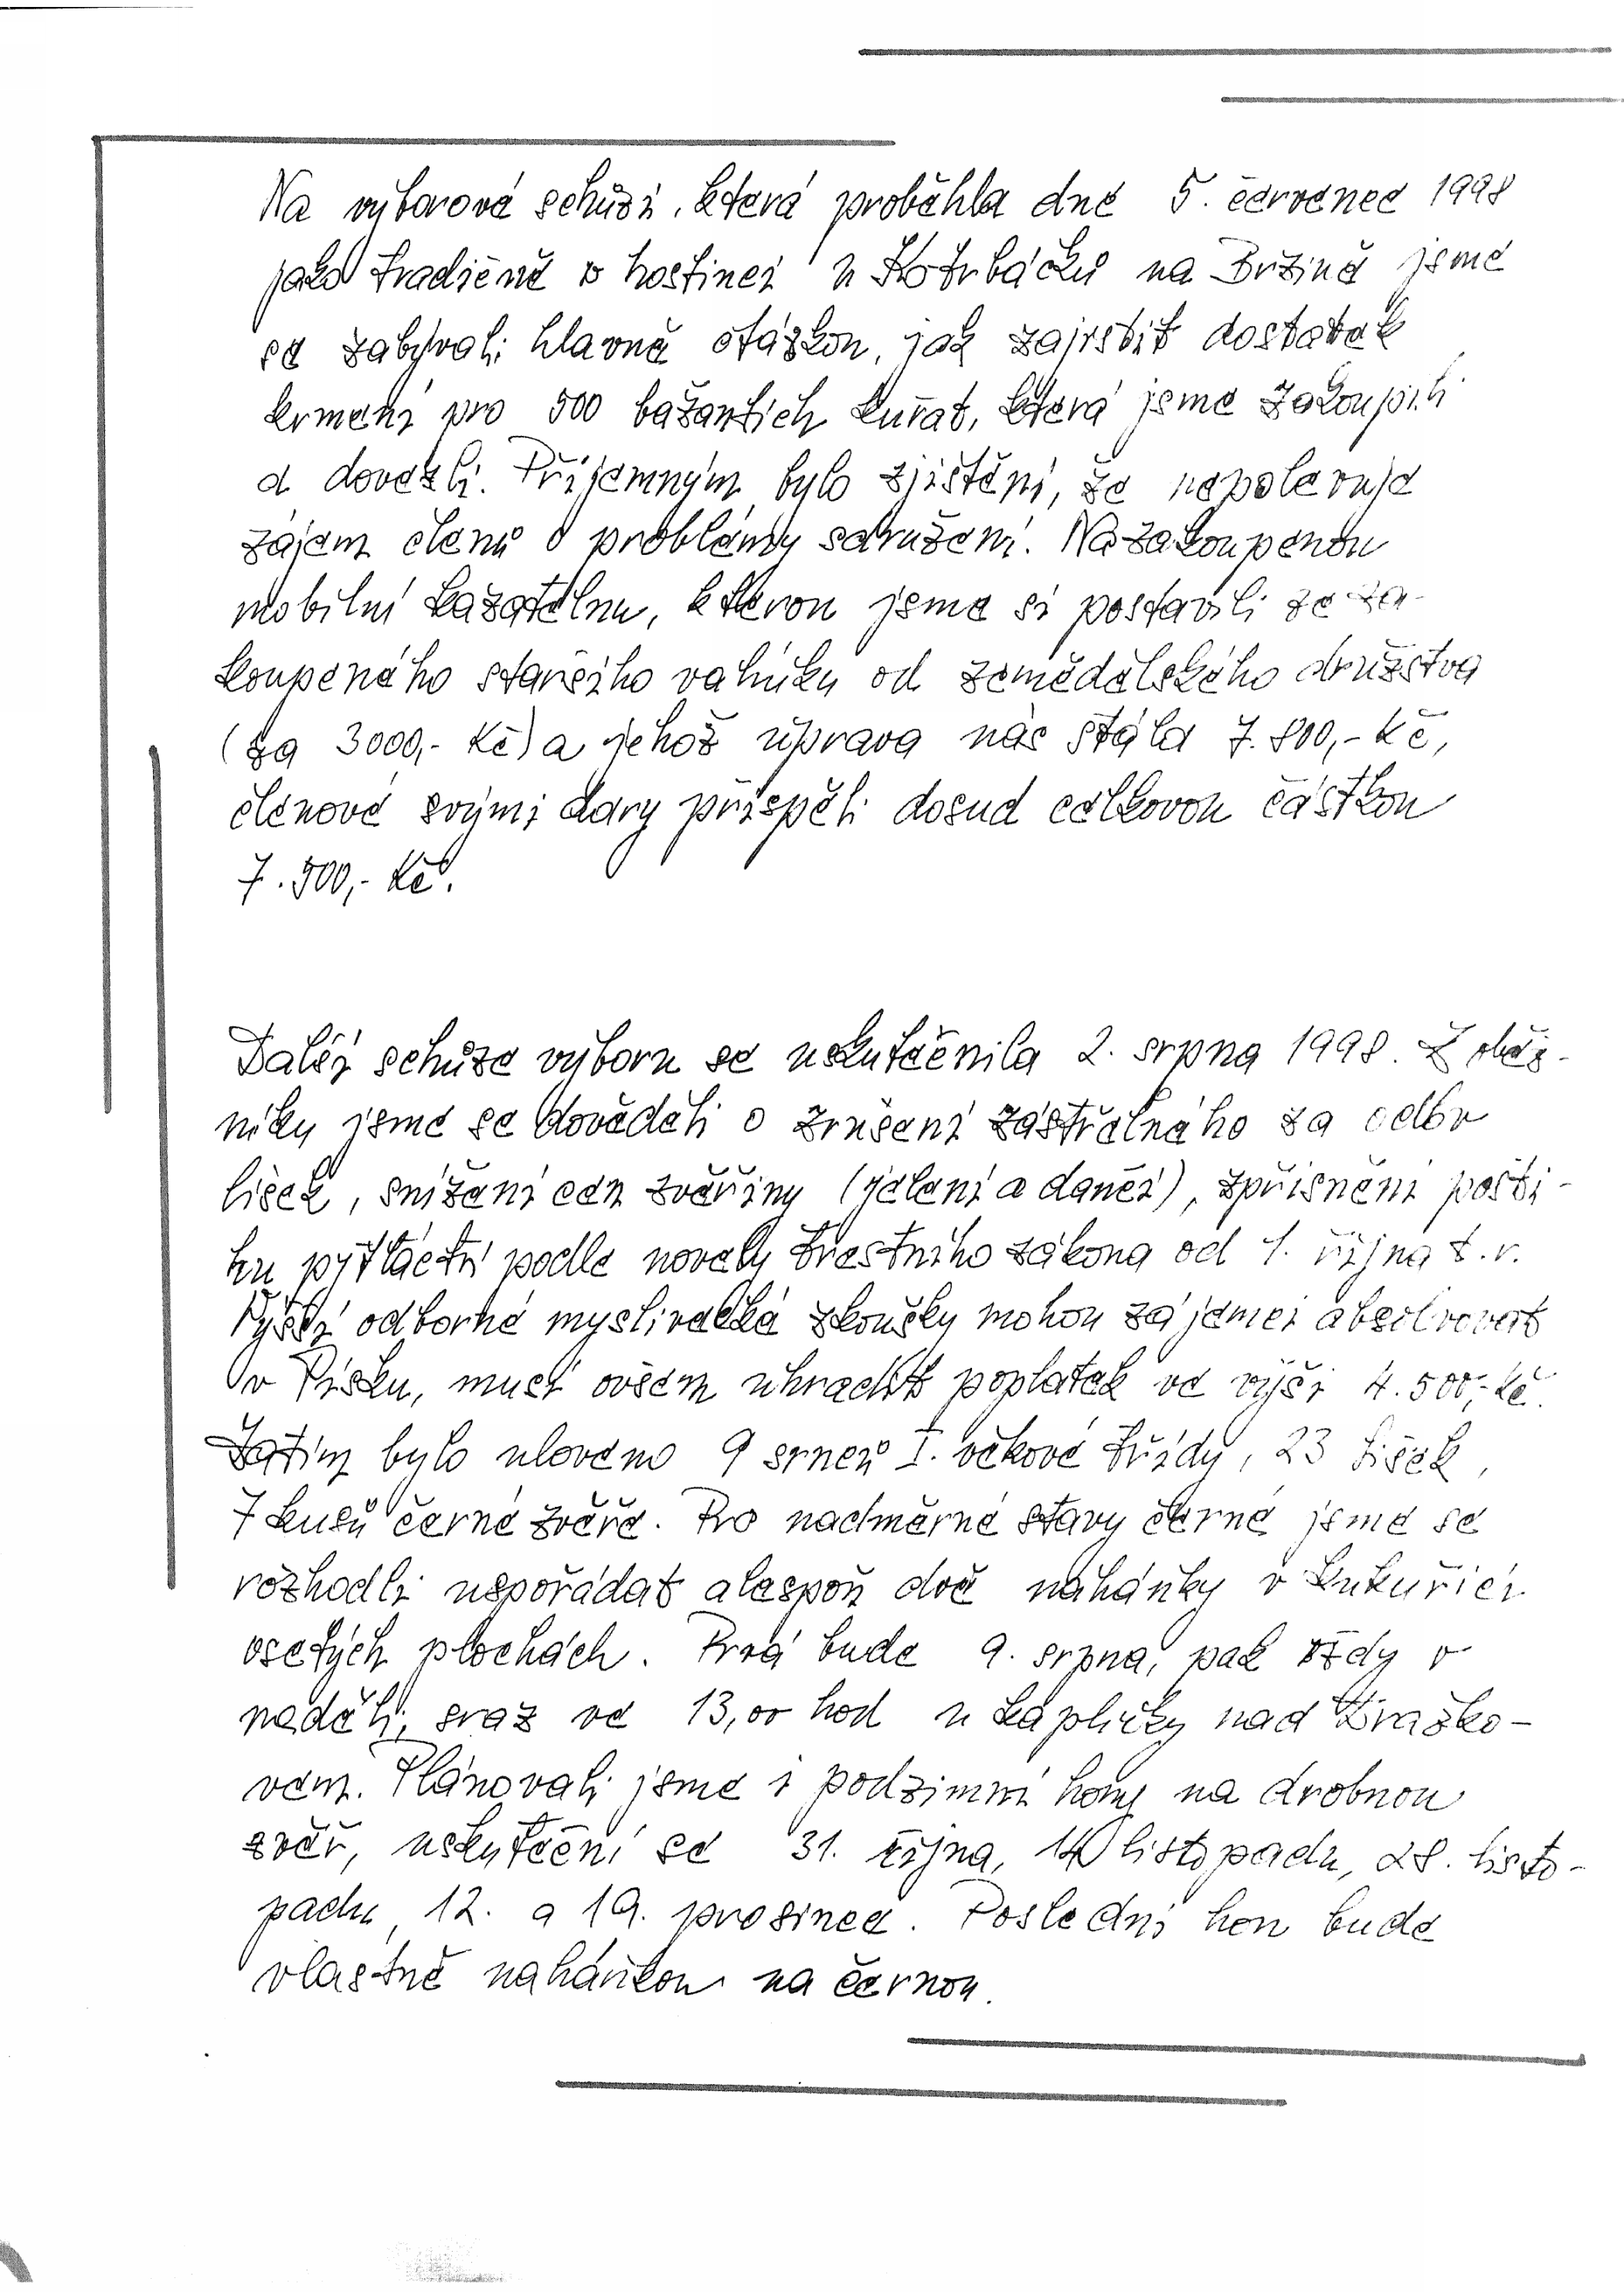 Na výborové schůzi, která proběhla dne 5. července 1998
jako tradičně v hostinci u Kotrbáčků na Bržině jsme
se zabývali hlavně otázkou, jak zajistit dostatek
krmení pro 500 bažantích kuřat, která jsme zakoupili
a dovezli. Příjemným bylo zjištění, že nepolevuje
zájem členů o problémy sdružení. Na zakoupenou
mobilní kazatelnu, kterou jsme si postavili ze za-
koupeného staršího valníku od zemědělského družstva
(za 3000,- Kč) a jehož úprava nás stála 7.800,- Kč,
členové svými dary přispěli dosud celkovou částkou
7.500,- Kč.
Další schůze výboru se uskutečnila 2. srpna 1998. Z oběž-
níku jsme se dověděli o zrušení zástřelného za odlov
lišek, snížení cen zvěřiny (jelení a dančí), zpřísnění posti-
hu pytláctví podle novely trestního zákona od 1. října t.r.
Vyšší odborné myslivecké zkoušky mohou zájemci absolvovat
v Písku, musí ovšem uhradit poplatek ve výši 4.500,- Kč.
Zatím bylo uloveno 9 srnců I. věkové třídy, 23 lišek,
7 kusů černé zvěře. Pro nadměrné stavy černé jsme se
rozhodli uspořádat alespoň dvě naháňky v kukuřicí
osetých plochách. Prvá bude 9. srpna, pak vždy v
neděli, sraz ve 13,00 hod u kapličky nad Kražko-
vem. Plánovali jsme i podzimní hony na drobnou
zvěř, uskuteční se 31. října, 14 listopadu, 28. listo-
padu, 12. a 19. prosince. Poslední hon bude
vlastně naháňkou na černou.